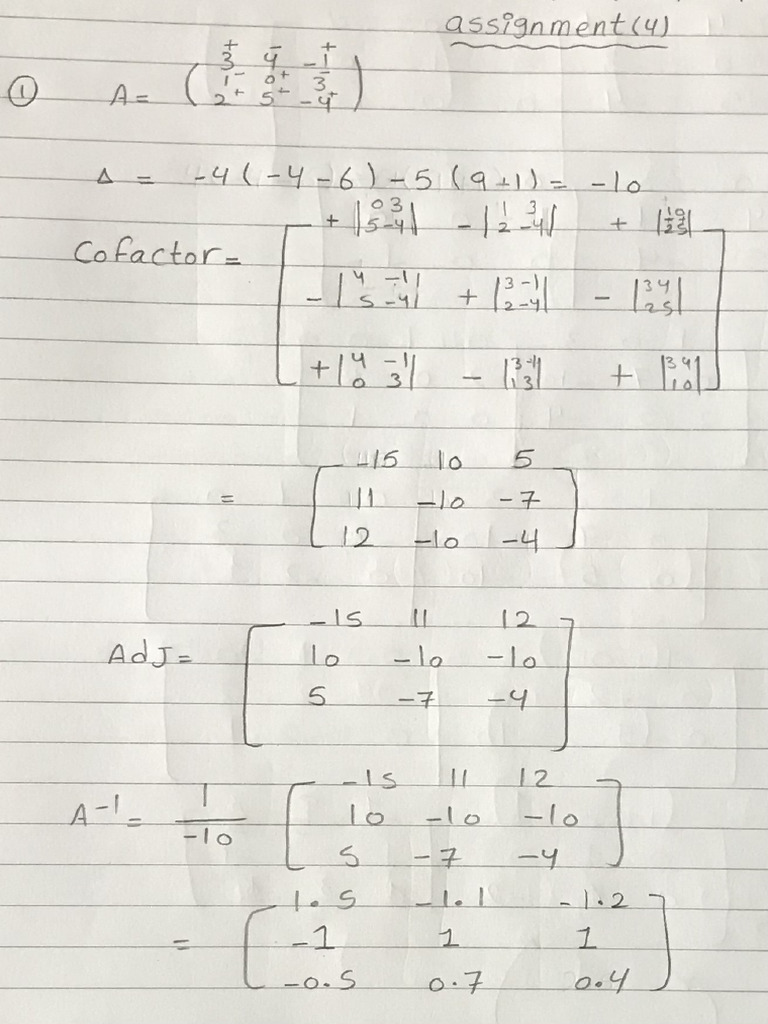 assignment(4)
① A = ( 3⁺ 4⁻ -1⁺
1⁻ 0⁺ 3⁻
2⁺ 5⁺ -4⁺ )
Δ = -4(-4-6)-5(9+1) = -10
Cofactor = [ +|0 3| -|1 3| + |1 0|
|5 -4| |2 -4| |2 5|
-|4 -1| +|3 -1| - |3 4|
|5 -4| |2 -4| |2 5|
+|4 -1| -|3 -1| + |3 4|
|0 3| |1 3| |1 0| ]
= [ -15 10 5
11 -10 -7
12 -10 -4 ]
AdJ = [ -15 11 12
10 -10 -10
5 -7 -4 ]
A⁻¹ = 1/-10 [ -15 11 12
10 -10 -10
5 -7 -4 ]
= [ 1.5 -1.1 -1.2
-1 1 1
-0.5 0.7 0.4 ]